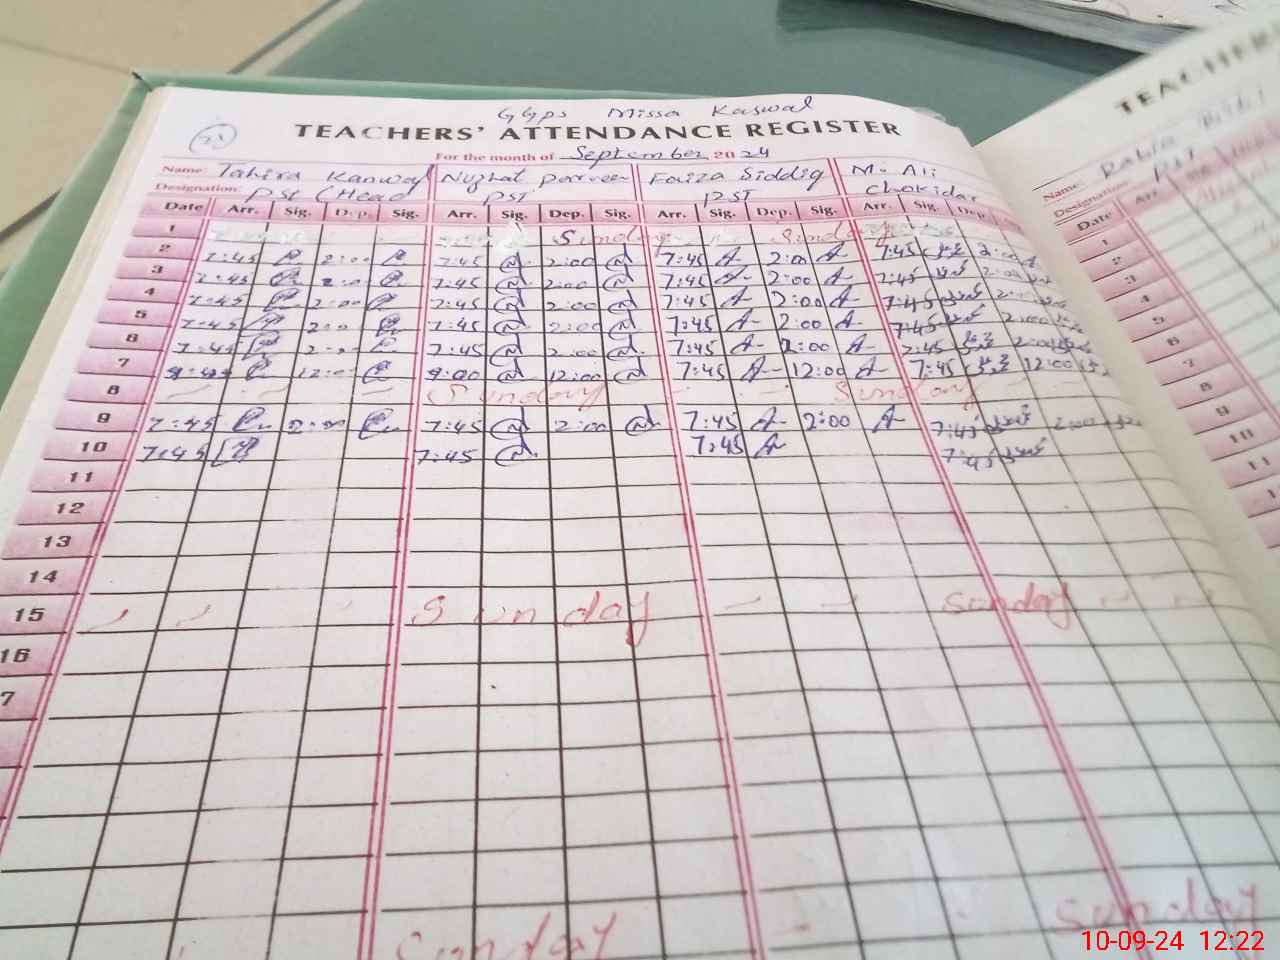 GGPS Missa Kaswal
TEACHERS' ATTENDANCE REGISTER
For the month of September 2024
Name: Tahira Kanwal Nuzhat Parveen Faiza Siddiq M. Ali
Designation: PST (Head PST PST Chokidar
Date Arr. Sig. Dep. Sig. Arr. Sig. Dep. Sig. Arr. Sig. Dep. Sig. Arr. Sig. Dep.
1 Sunday Sunday
2 7:45 2:00 7:45 2:00 7:45 2:00 7:45 2:00
3 7:45 2:00 7:45 2:00 7:45 2:00 7:45 2:00
4 7:45 2:00 7:45 2:00 7:45 2:00 7:45
5 7:45 2:00 7:45 2:00 7:45 2:00 7:45 2:00
6 7:45 7:45 2:00 7:45 2:00 7:45 2:00
7 12:00 9:00 12:00 7:45 12:00 7:45 12:00
8 Sunday Sunday
9 7:45 2:00 7:45 2:00 7:45 2:00 7:45 2:00
10 7:45 7:45 7:45 7:45
11
12
13
14
15 Sunday Sunday
16
7
Sunday Sunday
TEACHER
Name: Rabia
Designation: PST
Date Arr.
1
2
3
4
5
6
7
8
9
10
11
1
10-09-24 12:22